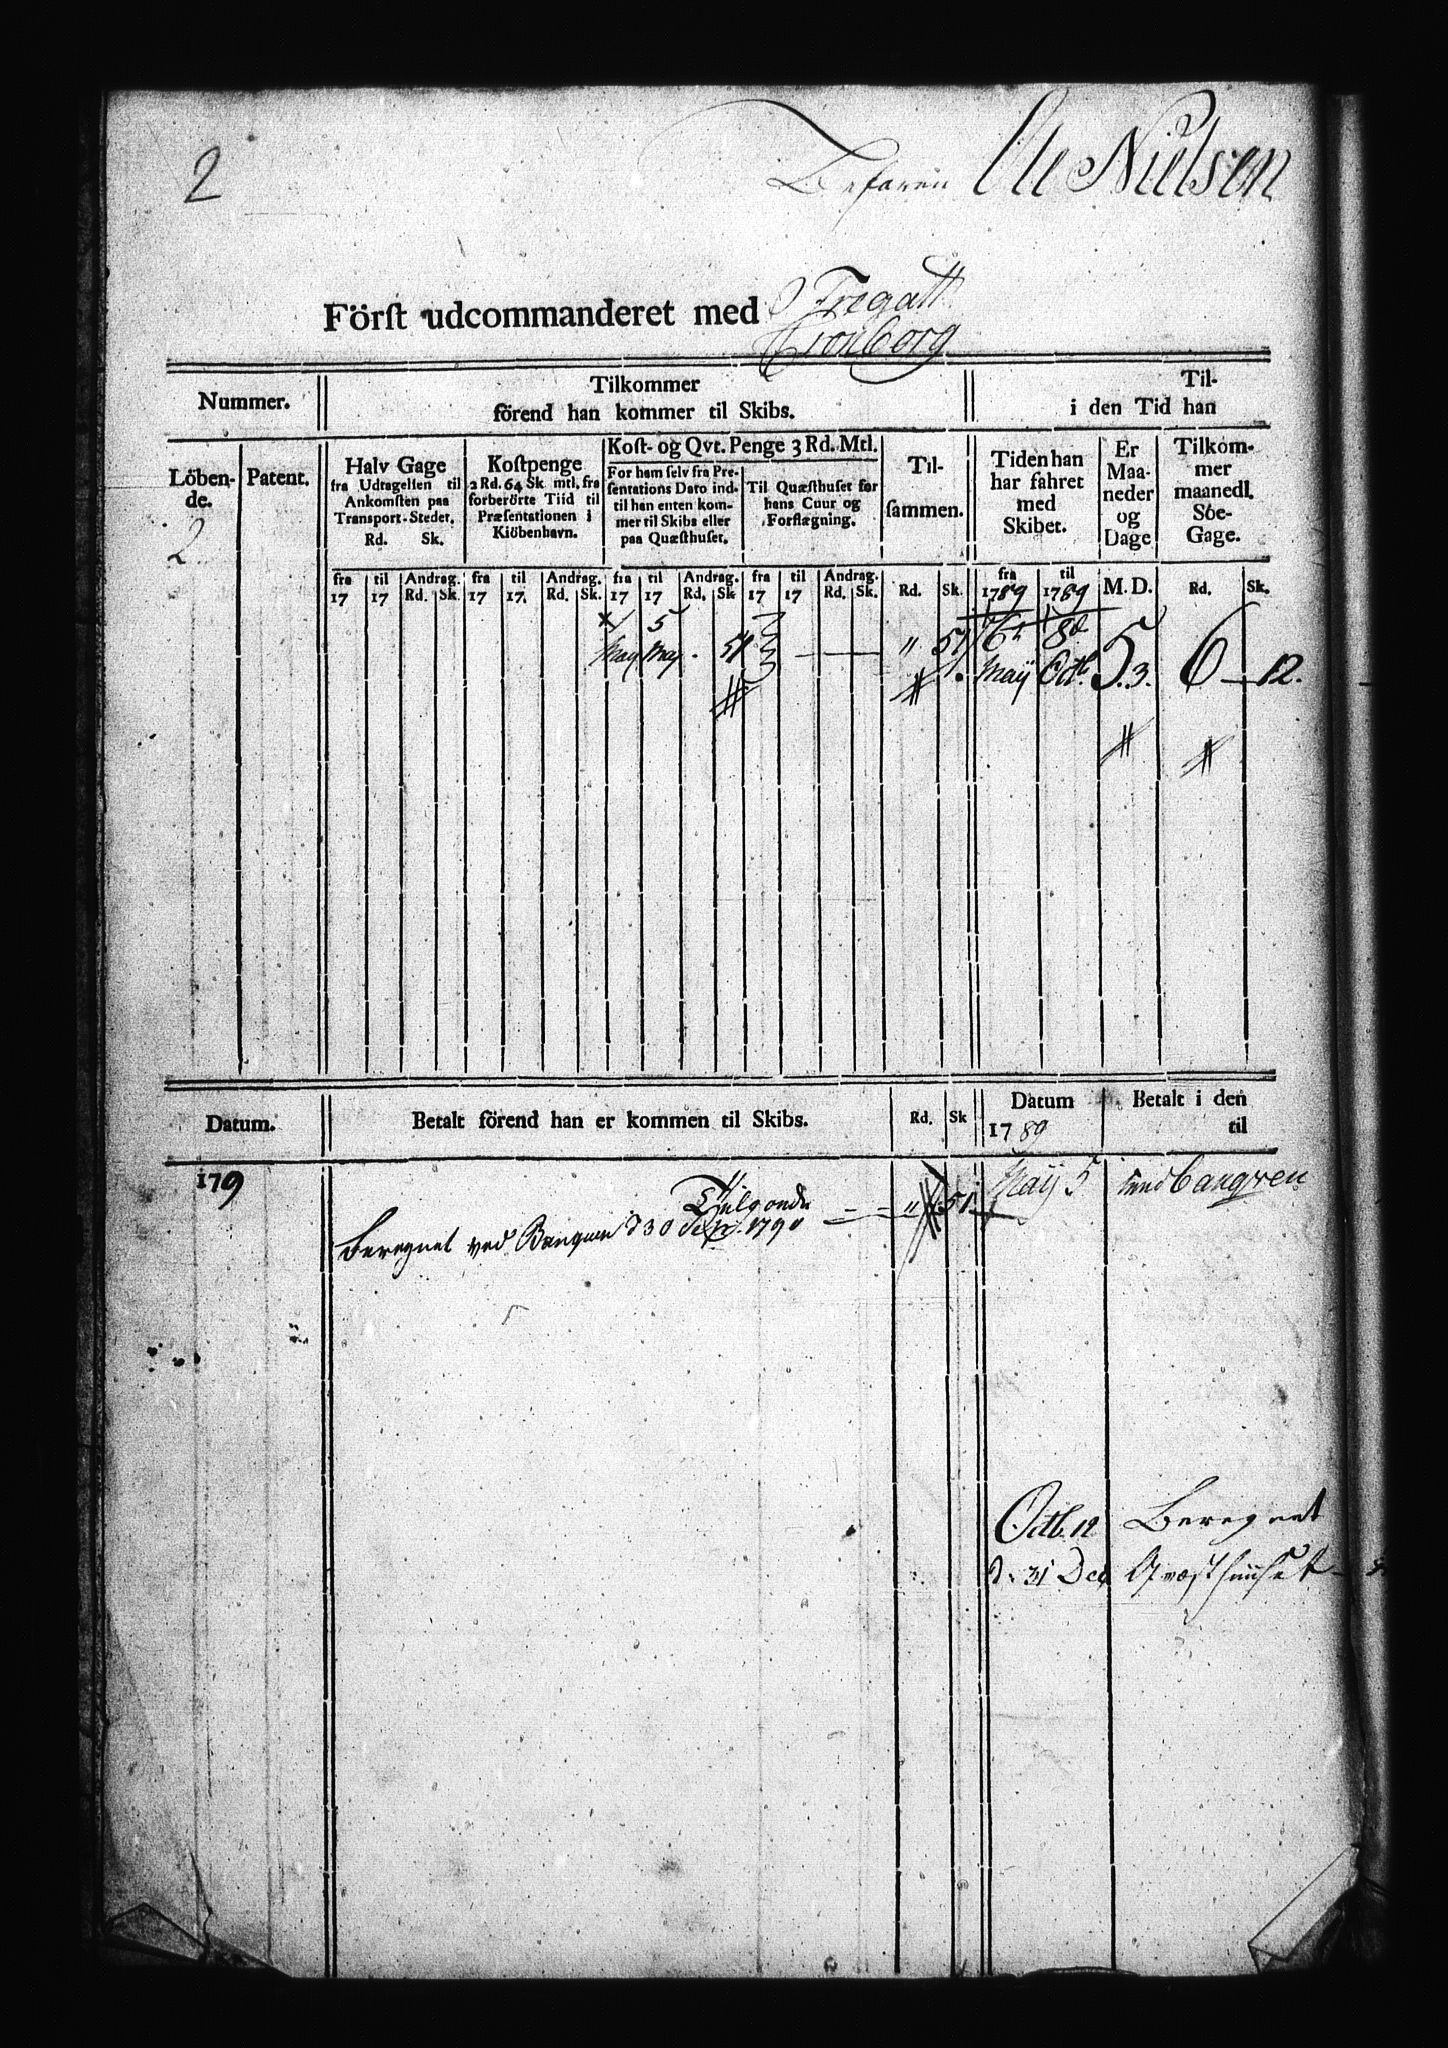 2
Befaren Ole Nielsen
Först udcommanderet med Fregatt
Cronborg
Nummer.
Tilkommer
förend han kommer til Skibs.
Til-
i den Tid han
Löben-
de.
Patent.
Halv Gage
fra Udtagelsen til
Ankomsten paa
Transport-Stedet.
Rd. Sk.
Kostpenge
2 Rd. 64 Sk mtl. fra
forberörte Tiid til
Præsentationen i
Kiöbenhavn.
Kost- og Qvt. Penge 3 Rd. Mtl.
For ham selv fra Pre-
sentations Dato ind-
til han enten kom-
mer til Skibs eller
paa Quæsthuset.
Til Quæsthuset for
hans Cuur og
Forplægning.
Til-
sammen.
Tiden han
har fahret
med
Skibet.
Er
Maa-
neder
og
Dage
Tilkom-
mer
maanedl.
Söe-
Gage.
2
fra til Andrag. fra til Andrag. fra til Andrag. fra til Andrag. fra til
17 17 Rd. Sk. 17 17 Rd. Sk. 17 17 Rd. Sk 17 17 Rd. Sk. Rd. Sk. 1789 1789 M. D. Rd. Sk.
1 5 6t 8d
May May - 51 — — " 51 Maÿ Octb. 5. 3. 6 — 12.
Datum. Betalt förend han er kommen til Skibs. Rd. Sk Datum
1789
Betalt i den
til
179
Tilgode — — " 51
Beregnet ved Banquen d 30 Sept. 1790
Maÿ 5 Banqven
Octb. 12 Beregnet
d. 31 Dec Qvæsthuuset —